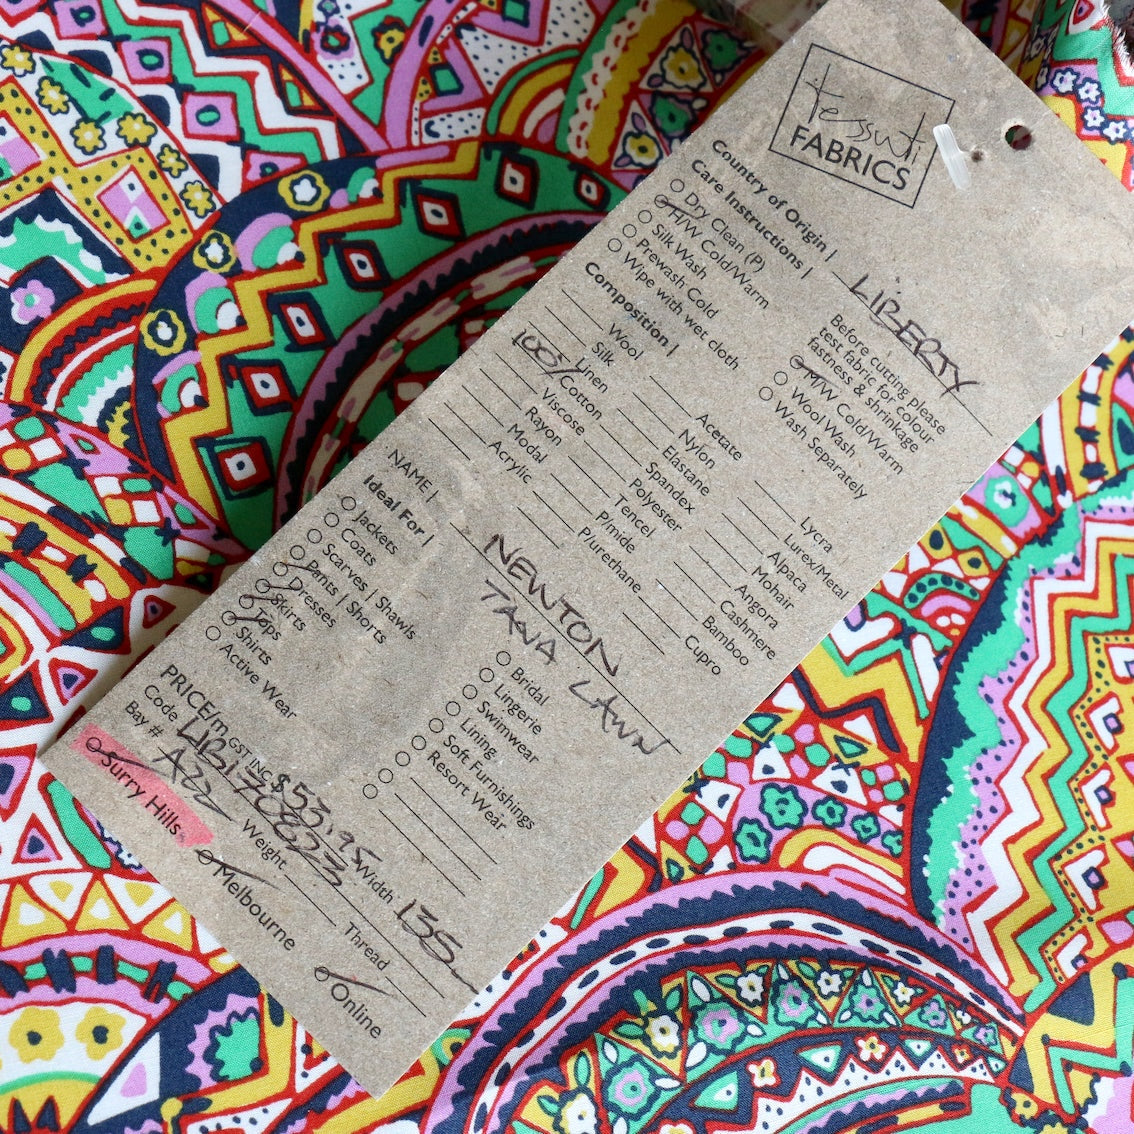 tessuti
FABRICS
Country of Origin | LIBERTY
Care Instructions |
Dry Clean (P)
H/W Cold/Warm
Silk Wash
Prewash Cold
Wipe with wet cloth
Before cutting please
test fabric for colour
fastness & shrinkage
H/W Cold/Warm
Wool Wash
Wash Separately
Composition |
Wool
Silk
Linen
100% Cotton
Viscose
Rayon
Modal
Acrylic
Acetate
Nylon
Elastane
Spandex
Polyester
Tencel
P/mide
P/urethane
Lycra
Lurex/Metal
Alpaca
Mohair
Angora
Cashmere
Bamboo
Cupro
NAME | NEWTON
TANA LAWN
Ideal For |
Jackets
Coats
Scarves | Shawls
Pants | Shorts
Dresses
Skirts
Tops
Shirts
Active Wear
Bridal
Lingerie
Swimwear
Lining
Soft Furnishings
Resort Wear
PRICE/m GST INC $53.95 Width 135
Code LIB170823
Bay # A22 Weight Thread
Surry Hills Melbourne Online